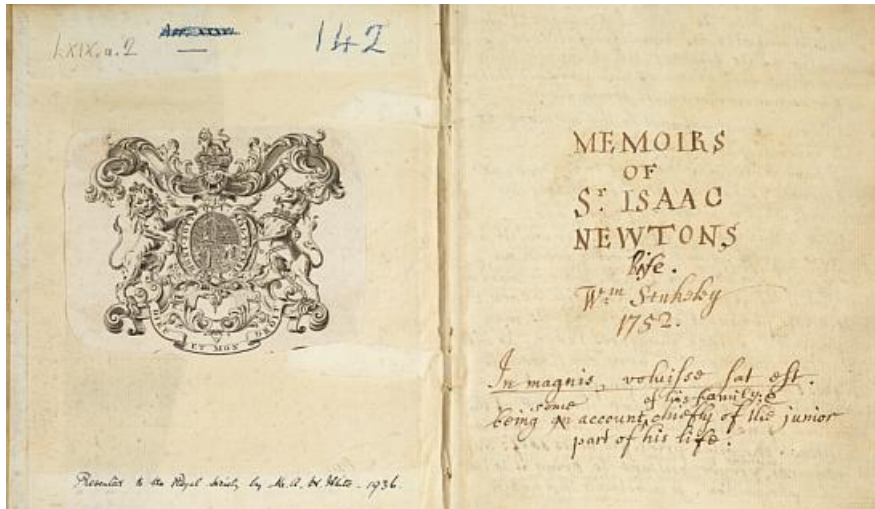 LXIX.a.2
142
DIEU ET MON DROIT
Presented to the Royal Society by Mr. A. H. White - 1936.
MEMOIRS
OF
Sr. ISAAC
NEWTONS
life.
Wm. Stukeley
1752.
In magnis, voluisse sat est.
some of his family: &
being an account, chiefly of the junior
part of his life.